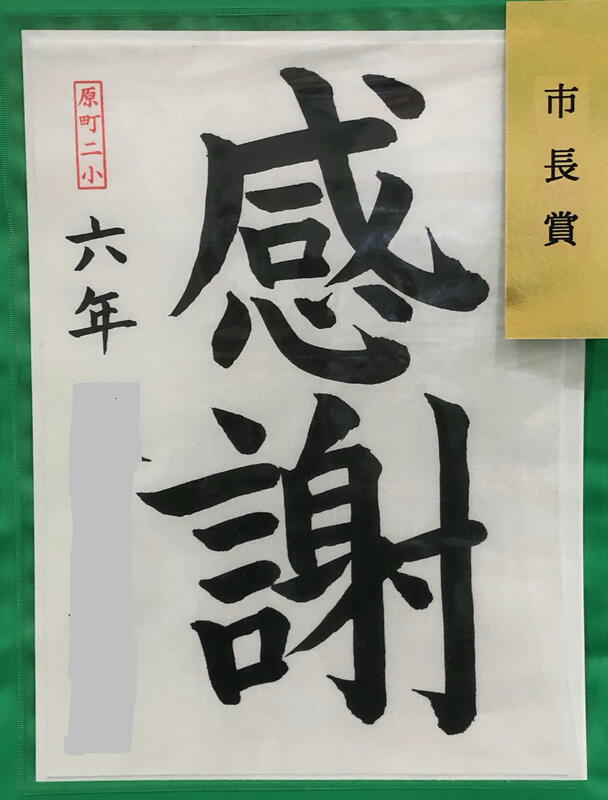 市長賞
感謝
原町二小
六年